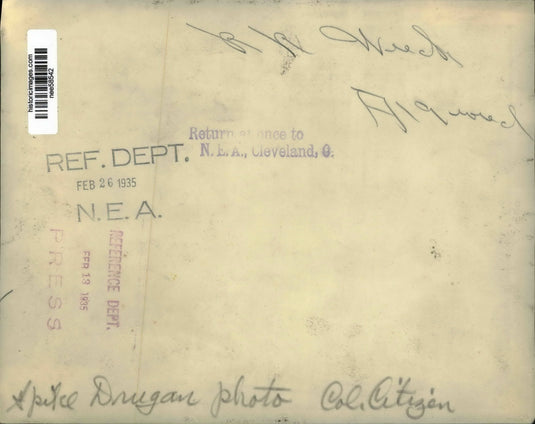 historicimages.com
nee58542
R R Wreck
Return at once to
N. E. A., Cleveland, O.
REF. DEPT.
FEB 26 1935
N. E. A.
PRESS
FEB 13 1935
REFERENCE DEPT.
Spike Drugan photo Col. Citizen